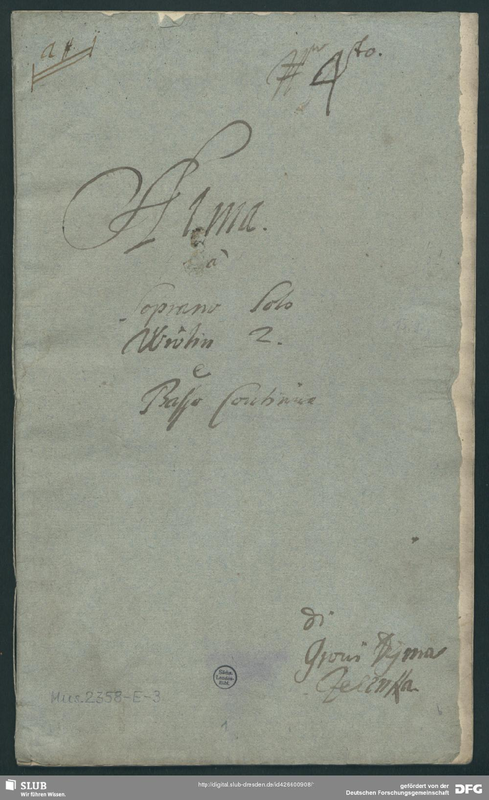 4to.
Alma.
à
Soprano Solo
Violin 2.
e
Basso Continuo
di
Giovì Dijma
Zelenka
Mus. 2358-E-3
1
SLUB
Wir führen Wissen.
http://digital.slub-dresden.de/id426600908/
gefördert von der
Deutschen Forschungsgemeinschaft
DFG